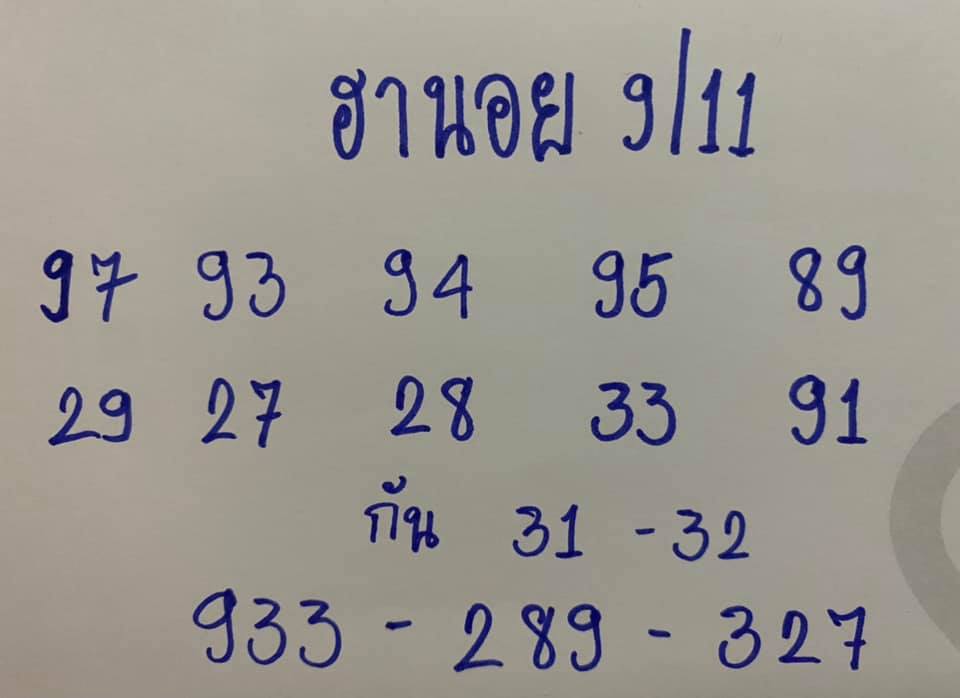 ฮานอย 9/11
97 93 94 95 89
29 27 28 33 91
กัน 31 - 32
933 - 289 - 327